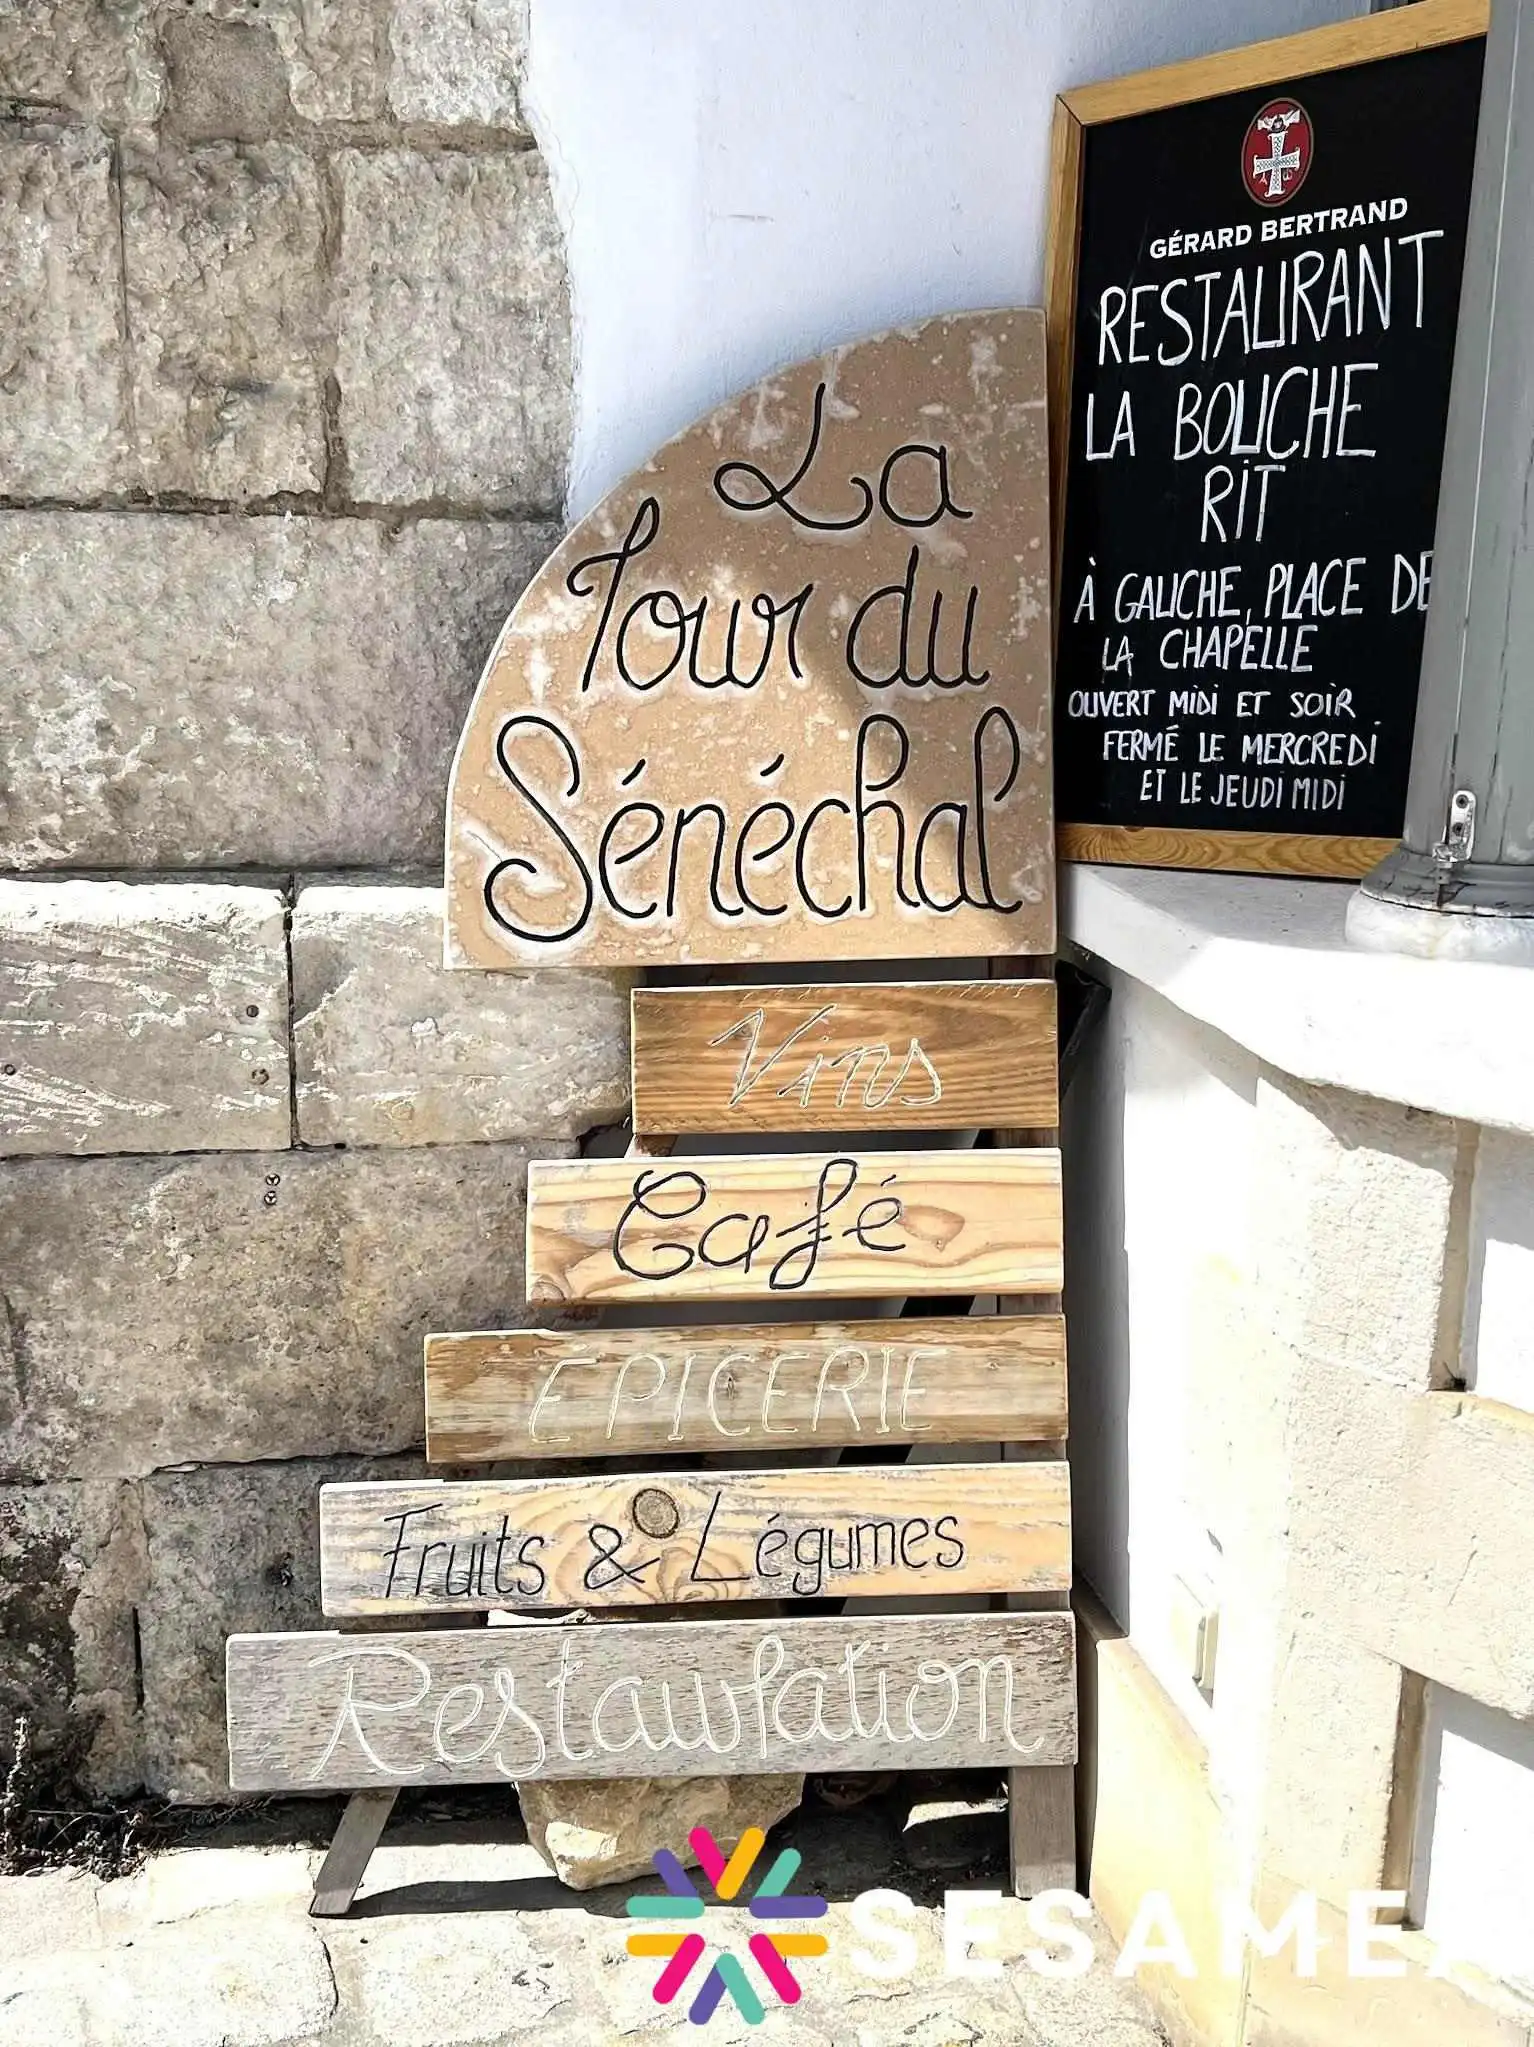 La
Tour du
Sénéchal
Vins
Café
EPICERIE
Fruits & Légumes
Restauration
GÉRARD BERTRAND
RESTAURANT
LA BOUCHE
RIT
À GAUCHE, PLACE DE
LA CHAPELLE
OUVERT MIDI ET SOIR
FERMÉ LE MERCREDI
ET LE JEUDI MIDI